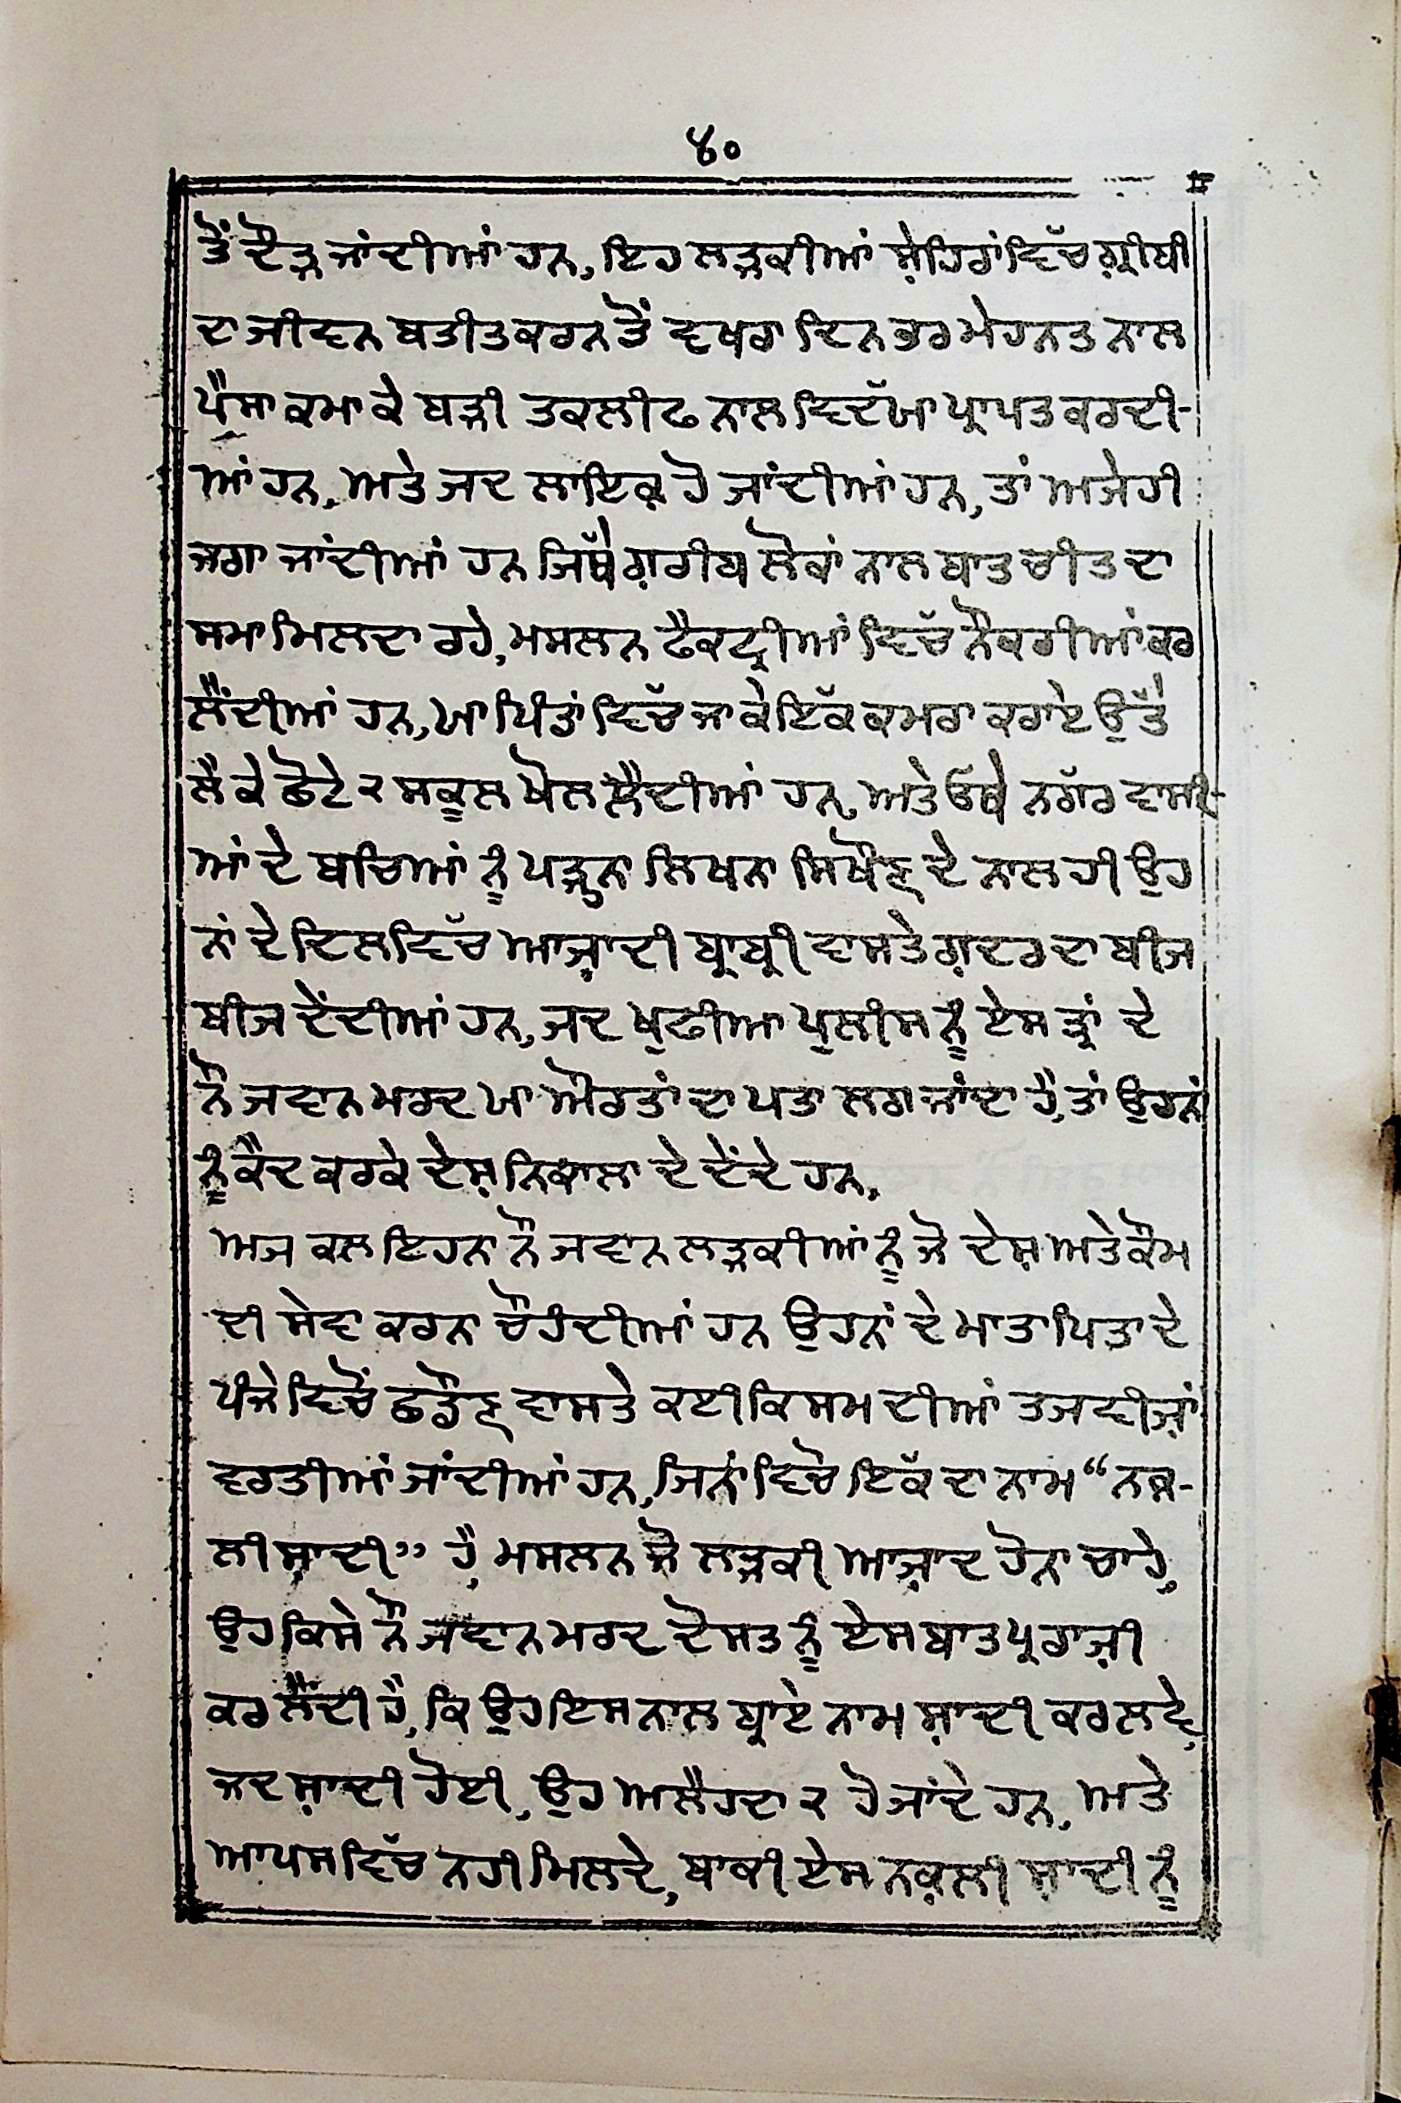 ੪੦
ਤੋਂ ਦੌੜ ਜਾਂਦੀਆਂ ਹਨ, ਇਹ ਲੜਕੀਆਂ ਸ਼ੇਹਿਰਾਂ ਵਿੱਚ ਗ਼੍ਰੀਬੀ
ਦਾ ਜੀਵਨ ਬਤੀਤ ਕਰਨ ਤੋਂ ਵਖਰਾ ਦਿਨ ਭਰ ਮੇਹਨਤ ਨਾਲ
ਪੈਸਾ ਕਮਾ ਕੇ ਬੜੀ ਤਕਲੀਫ ਨਾਲ ਵਿਦੱਯਾ ਪ੍ਰਾਪਤ ਕਰਦੀ-
ਆਂ ਹਨ, ਅਤੇ ਜਦ ਲਾਇਕ਼ ਹੋ ਜਾਂਦੀਆਂ ਹਨ, ਤਾਂ ਅਜੇਹੀ
ਜਗਾ ਜਾਂਦੀਆਂ ਹਨ ਜਿਥੇੱ ਗ਼ਰੀਬ ਲੋਕਾਂ ਨਾਲ ਬਾਤ ਚੀਤ ਦਾ
ਸਮਾ ਮਿਲਦਾ ਰਹੇ, ਮਸਲਨ ਫੈਕਟ੍ਰੀਆਂ ਵਿੱਚ ਨੌਕਰੀਆਂ ਕਰ
ਲੈਂਦੀਆਂ ਹਨ, ਯਾ ਪਿੰਡਾਂ ਵਿੱਚ ਜਾ ਕੇ ਇੱਕ ਕਮਰਾ ਕਰਾਏ ਉੱਤੇ
ਲੈ ਕੇ ਛੋਟੇ ੨ ਸਕੂਲ ਖੋਲ ਲੈਂਦੀਆਂ ਹਨ, ਅਤੇ ਓਥੇ ਨਗੱਰ ਵਾਸੀ-
ਆਂ ਦੇ ਬਚਿਆਂ ਨੂੰ ਪੜ੍ਹਨਾ ਲਿਖਨਾ ਸਿਖੌਣ ਦੇ ਨਾਲ ਹੀ ਉਹ
ਨਾਂ ਦੇ ਦਿਲ ਵਿੱਚ ਆਜ਼ਾਦੀ ਬ੍ਰਾਬ੍ਰੀ ਵਾਸਤੇ ਗ਼ਦਰ ਦਾ ਬੀਜ
ਬੀਜ ਦੇਂਦੀਆਂ ਹਨ, ਜਦ ਖੁਫੀਆ ਪੁਲੀਸ ਨੂੰ ਏਸ ਤ੍ਰਾਂ ਦੇ
ਨੌ ਜਵਾਨ ਮਰਦ ਯਾ ਔਰਤਾਂ ਦਾ ਪਤਾ ਲਗ ਜਾਂਦਾ ਹੈ, ਤਾਂ ਉਹਨਾਂ
ਨੂੰ ਕੈਦ ਕਰਕੇ ਦੇਸ਼ ਨਿਕਾਲਾ ਦੇ ਦੇਂਦੇ ਹਨ,
ਅਜ ਕਲ ਇਹਨਾ ਨੌ ਜਵਾਨ ਲੜਕੀਆਂ ਨੂੰ ਜੋ ਦੇਸ਼ ਅਤੇ ਕੌਮ
ਦੀ ਸੇਵਾ ਕਰਨਾ ਚੌਹੰਦੀਆਂ ਹਨ ਉਹਨਾਂ ਦੇ ਮਾਤਾ ਪਿਤਾ ਦੇ
ਪੰਜੇ ਵਿਚੋਂ ਛਡੌਣ ਵਾਸਤੇ ਕਈ ਕਿਸਮ ਦੀਆਂ ਤਜਵੀਜ਼ਾਂ
ਵਰਤੀਆਂ ਜਾਂਦੀਆਂ ਹਨ, ਜਿਨਾਂ ਵਿਚੋ ਇੱਕ ਦਾ ਨਾਮ “ਨਕ਼-
ਲੀ ਸ਼ਾਦੀ” ਹੈ, ਮਸਲਨ ਜੋ ਲੜਕੀ ਆਜ਼ਾਦ ਹੋਨਾ ਚਾਹੇ,
ਉਹ ਕਿਸੇ ਨੌ ਜਵਾਨ ਮਰਦ ਦੋਸਤ ਨੂੰ ਏਸ ਬਾਤ ਪ੍ਰ ਰਾਜ਼ੀ
ਕਰ ਲੈਂਦੀ ਹੈ, ਕਿ ਉਹ ਇਸ ਨਾਲ ਬ੍ਰਾਏ ਨਾਮ ਸ਼ਾਦੀ ਕਰ ਲਵੇ,
ਜਦ ਸ਼ਾਦੀ ਹੋਈ, ਉਹ ਅਲੈਹਦਾ ੨ ਹੋ ਜਾਂਦੇ ਹਨ, ਅਤੇ
ਆਪਸ ਵਿੱਚ ਨਹੀ ਮਿਲਦੇ, ਬਾਕੀ ਏਸ ਨਕ਼ਲੀ ਸ਼ਾਦੀ ਨੂੰ